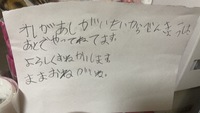 オレがあしがいたいからでんきけ
あとでやってねてます。
よろしくおねがいします
ままおねがいね。